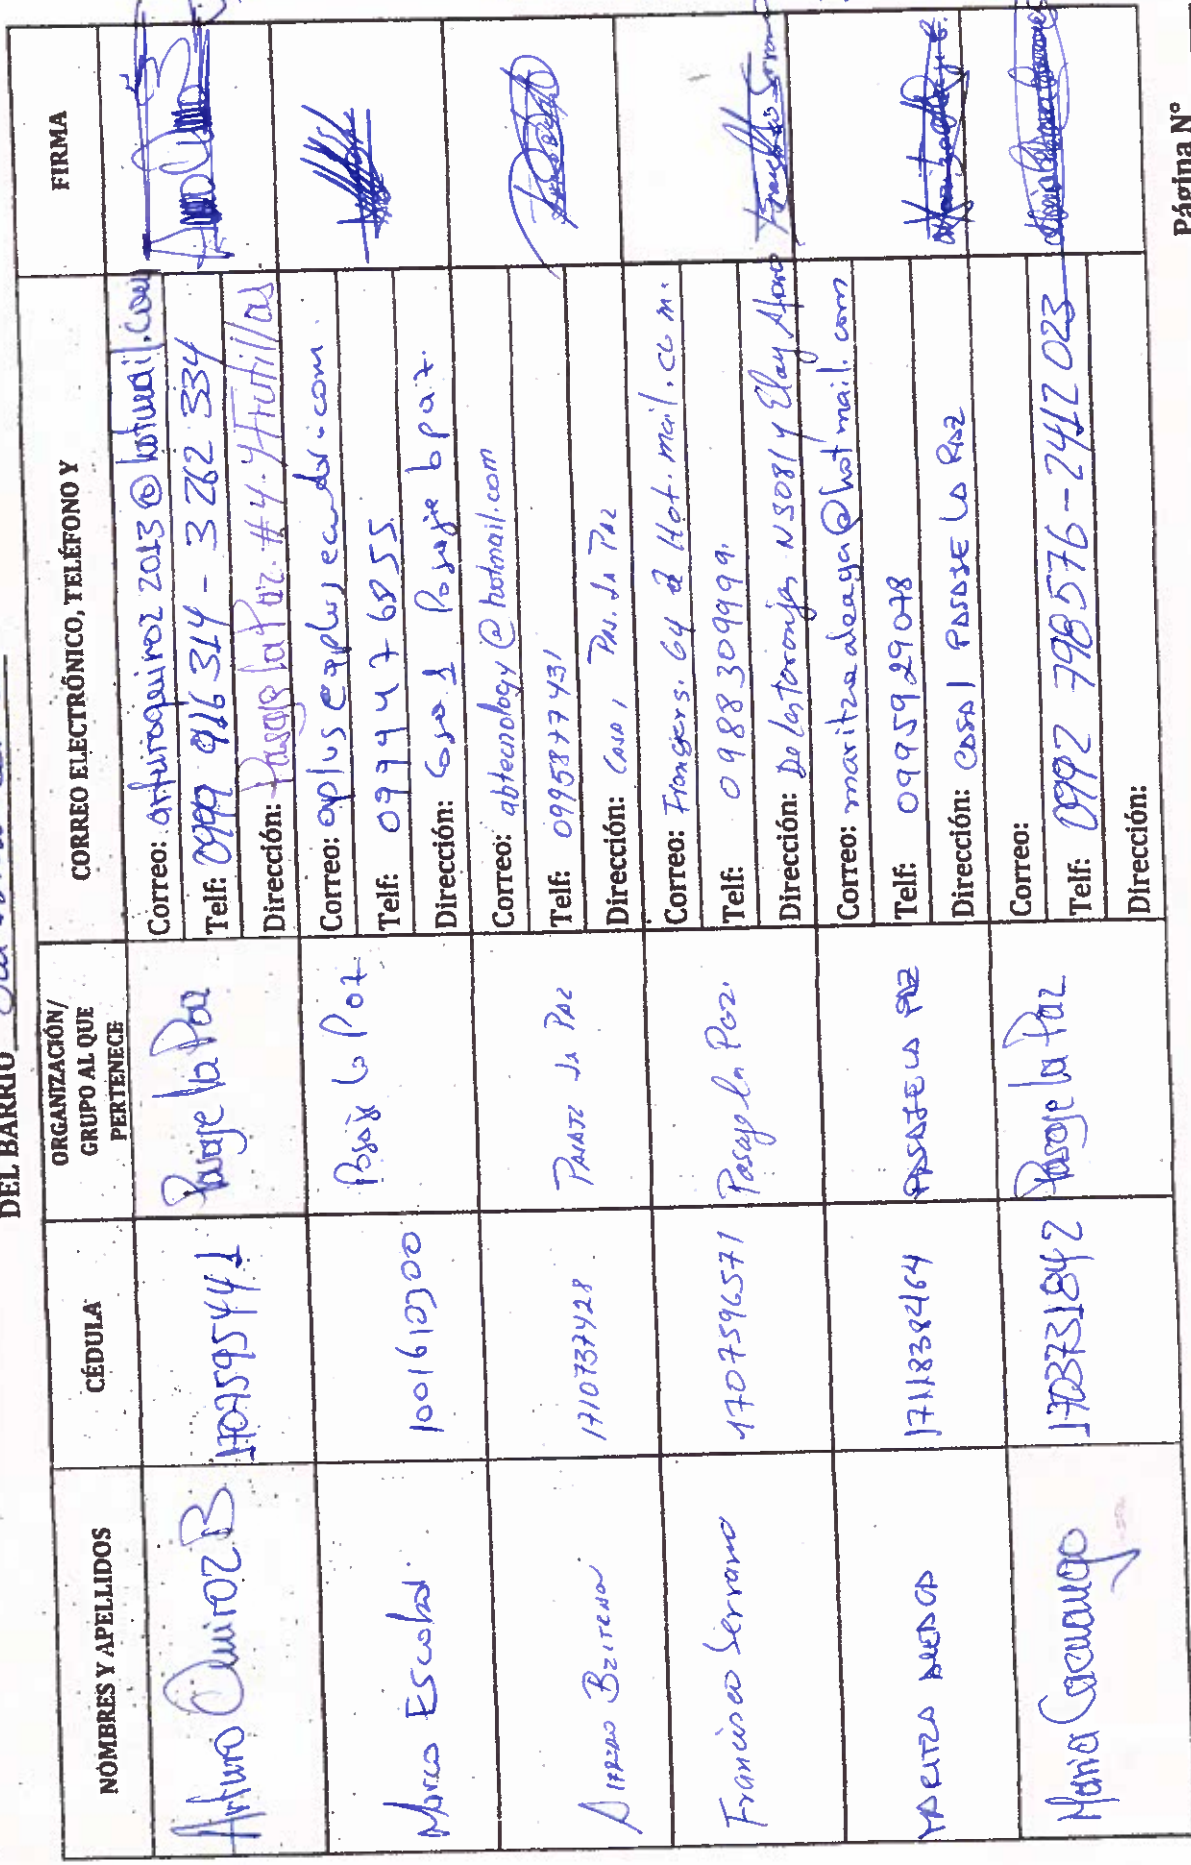 DEL BARRIO
NOMBRES Y APELLIDOS
CÉDULA
ORGANIZACIÓN/
GRUPO AL QUE
PERTENECE
CORREO ELECTRÓNICO, TELÉFONO Y
FIRMA
Arturo Quiroz B
1707595441
Pasaje la Paz
Correo: arturoquiroz2013@hotmail.com
Telf: 0999 916 314 - 3 262 334
Dirección: Pasaje la Paz #4 y Frutillas
Marco Escobar
1001610300
Pasaje la Paz
Correo: aplus@aplusecuador.com.
Telf: 0999476855
Dirección: Casa 1 Pasaje la paz.
1710737428
La Paz
Correo: abtecnology@hotmail.com
Telf: 0995877431
Dirección: Casa 1 Pas. La Paz
Francisco Serrano
1707596571
Pasaje la Paz.
Correo: Franser s. 64 @ Hot.mail.com.
Telf: 0988309999.
Dirección: De las Toronjas N3081 y Eloy Alfaro
Francisco Serrano
MARITZA ALEAGA
1711838464
PASAJE LA PAZ
Correo: maritzadeaga@hotmail.com
Telf: 0995929078
Dirección: CASA 1 PASAJE LA PAZ
Maria Cacuango
1703731842
Pasaje la Paz
Correo:
Telf: 0992 798576-2412023
Dirección:
Página N°